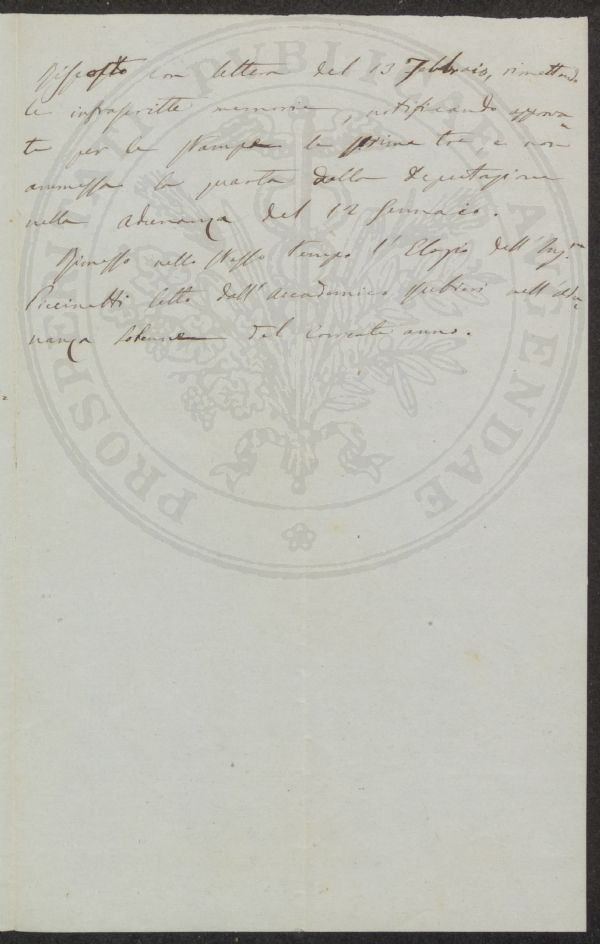 Risposto con lettera del 13 Febbraio, rimettendo
le infrascritte memorie, notificando approva-
te per la stampa le prime tre, e non
ammessa la quarta dalla Deputazione
nella adunanza del 12 Gennaio.
Rimesso nello stesso tempo l'Elogio dell'Ing.re
Piccinetti letto dall'accademico nell'adu-
nanza solenne del corrente anno.
PROSPERITATI PUBLICAE AUGENDAE